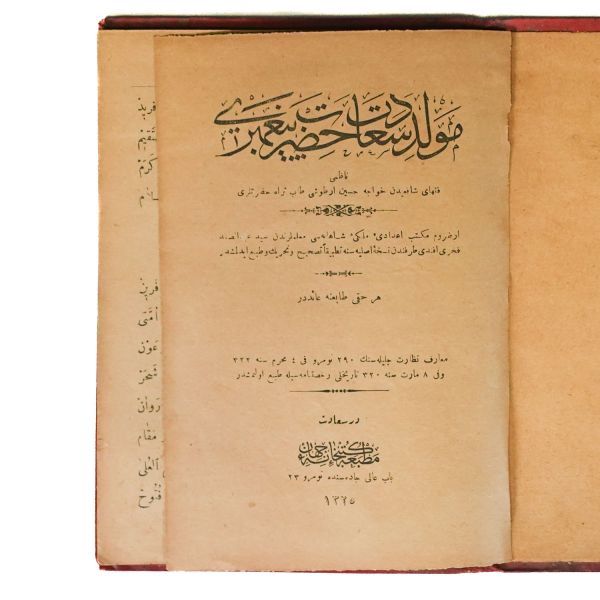 مولد سعادت حضرت پیغمبری
ناظمی
فقهای شافعیدن خواجه حسین ارطوشی طاب ثراه حضرتلری
ارضروم مکتب اعدادیٔ ملکیٔ شاهانه‌سی معلملرندن سید عبدالصمد
فخری افندی طرفندن نسخهٔ اصلیه‌سنه تطبیقاً تصحیح و تحریك و طبع ایدلمشدر
هر حقی طابعنه عائددر
معارف نظارت جلیله‌سنك ٢٩٠ نومرو و فی ٤ محرم سنه ٣٢٢
و فی ٨ مارت سنه ٣٢٠ تاریخلی رخصتنامه‌سیله طبع اولنمشدر
در سعادت
مطبعهٔ کتبخانهٔ جهان
باب عالی جاده‌سنده نومرو ٢٣
فرید
کرم
فرید
امّتی
عون
روان
مقام
العلی
فتوح